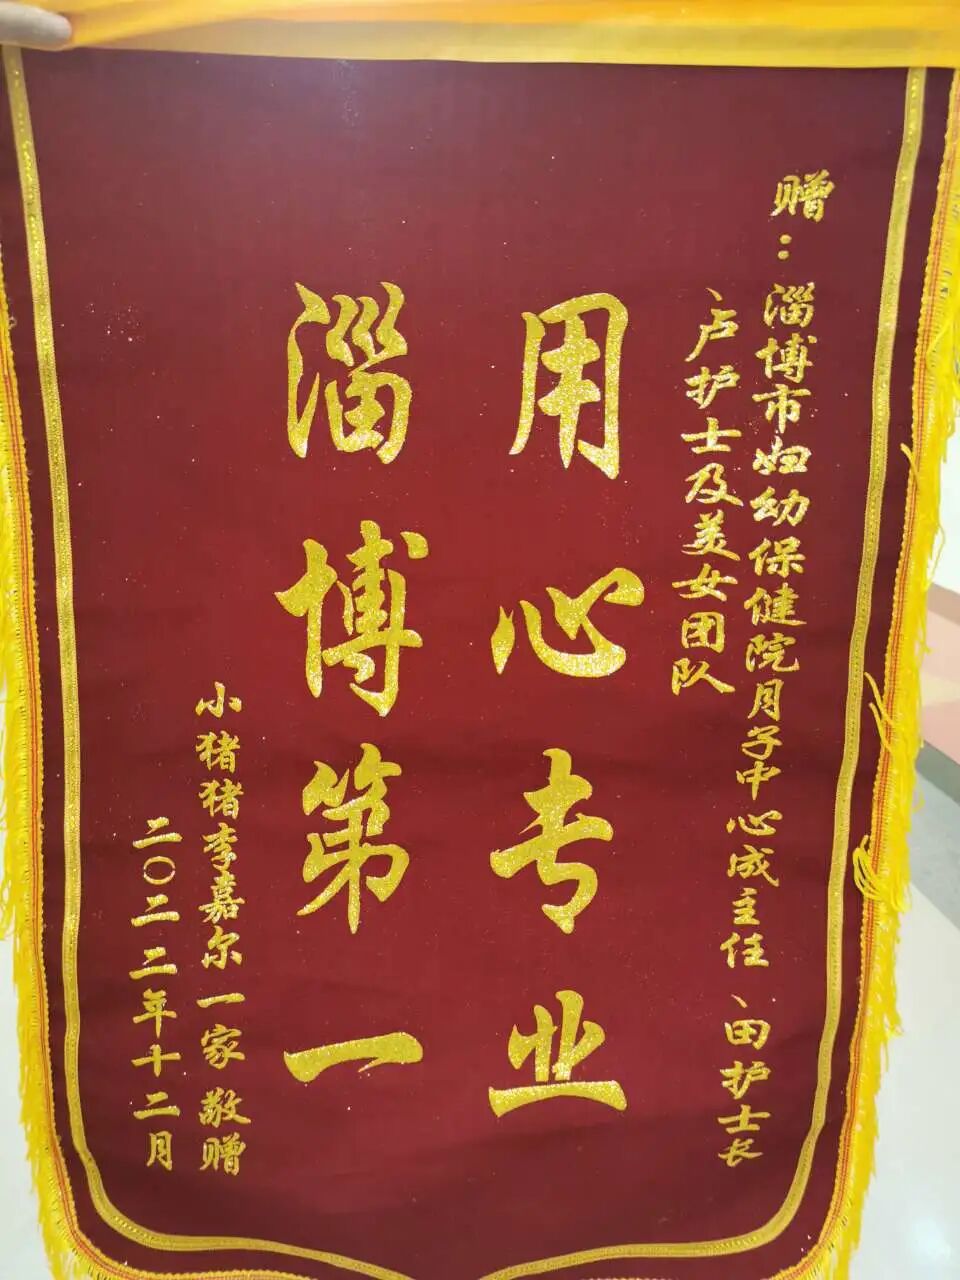 赠：淄博市妇幼保健院月子中心成主任、田护士长
、卢护士及美女团队
用心专业
淄博第一
小猪猪李嘉尔一家 敬赠
二〇二二年十二月